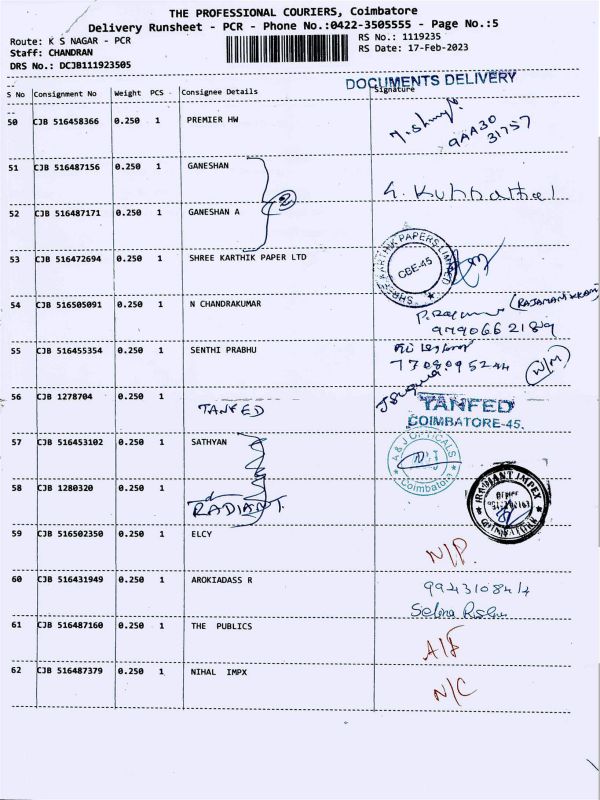 THE PROFESSIONAL COURIERS, Coimbatore
Delivery Runsheet - PCR - Phone No.:0422-3505555 - Page No.:5
Route: K S NAGAR - PCR
RS No.: 1119235
Staff: CHANDRAN
RS Date: 17-Feb-2023
DRS No.: DCJB111923505
DOCUMENTS DELIVERY
S No Consignment No Weight PCS Consignee Details Signature
50 CJB 516458366 0.250 1 PREMIER HW
9AA30
31757
51 CJB 516487156 0.250 1 GANESHAN
2
52 CJB 516487171 0.250 1 GANESHAN A
53 CJB 516472694 0.250 1 SHREE KARTHIK PAPER LTD
SHREE KARTHIK PAPERS LIMITED
CBE-45
54 CJB 516505091 0.250 1 N CHANDRAKUMAR
55 CJB 516455354 0.250 1 SENTHI PRABHU
7708095244
W/M
56 CJB 1278704 0.250 1 TANFED
TANFED
COIMBATORE-45.
57 CJB 516453102 0.250 1 SATHYAN
A & J OPTICALS
Coimbatore
58 CJB 1280320 0.250 1 RADIANT.
RADIANT IMPEX
59 CJB 516502350 0.250 1 ELCY
N/P.
60 CJB 516431949 0.250 1 AROKIADASS R
Selina
61 CJB 516487160 0.250 1 THE PUBLICS
A/F
62 CJB 516487379 0.250 1 NIHAL IMPX
N/C